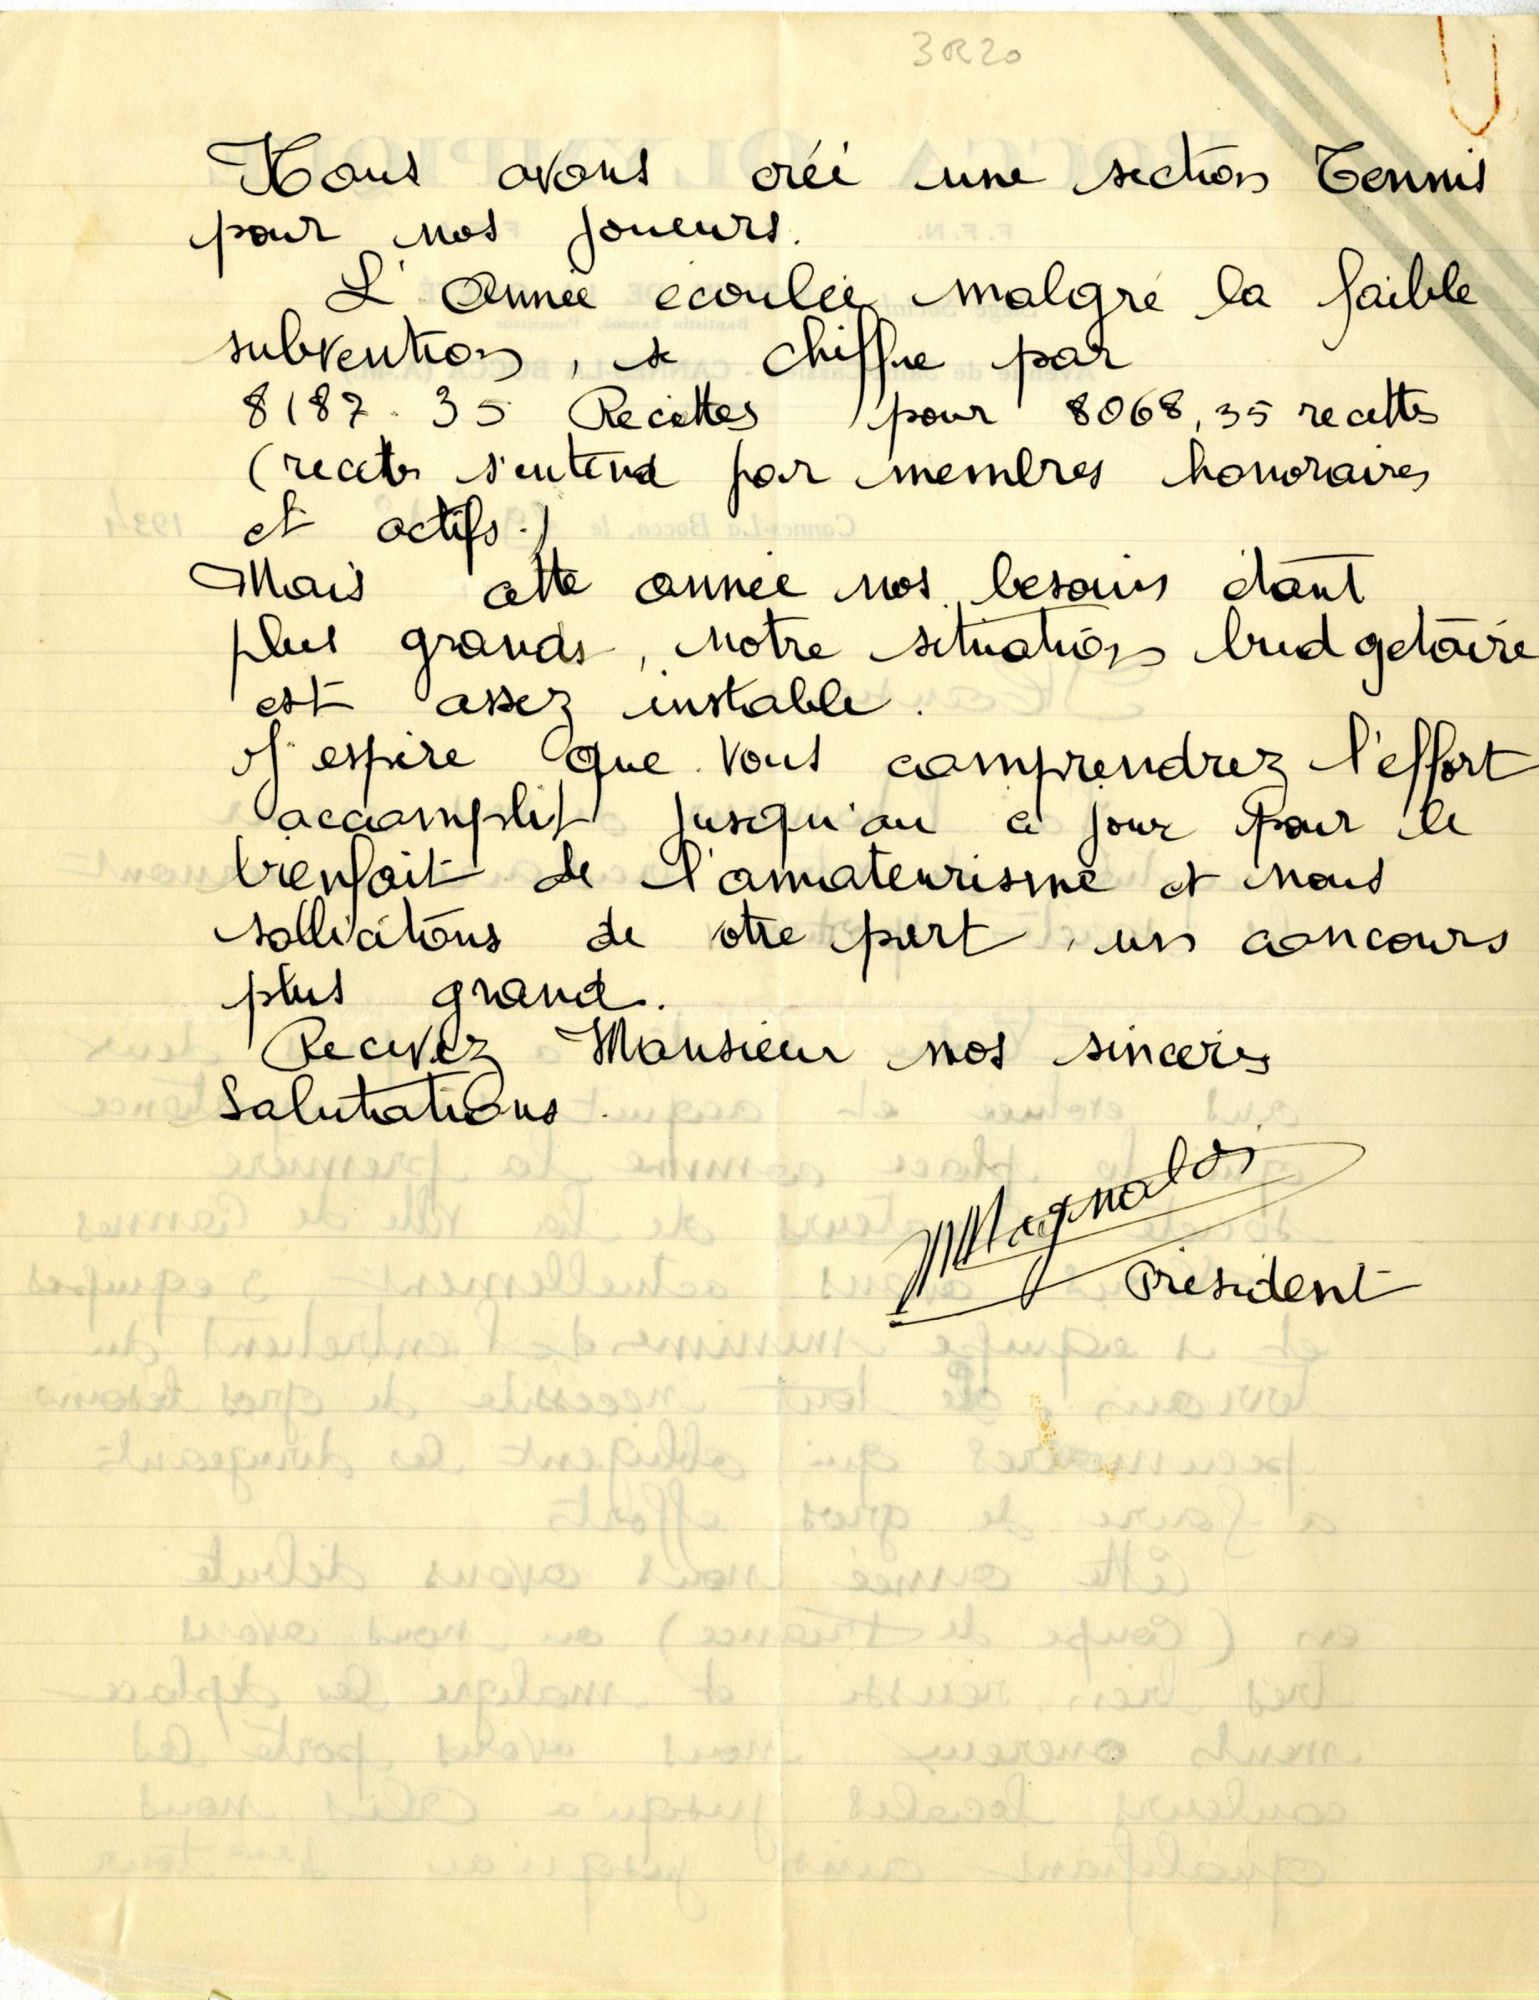 3R20
Nous avons créé une section Tennis
pour nos joueurs.
L'Année écoulée malgré la faible
subvention, se chiffre par
8187.35 Recettes pour 8068,35 recettes
(recettes s'entend par membres honoraires
et actifs.)
Mais cette année nos besoins étant
plus grands, notre situation budgetaire
est assez instable.
J'espère que vous comprendrez l'effort
accomplit jusqu'au ce jour pour le
bienfait de l'amateurisme et nous
sollicitons de votre part, un concours
plus grand.
Recevez Monsieur nos sincères
Salutations.
Magnaldi
Président